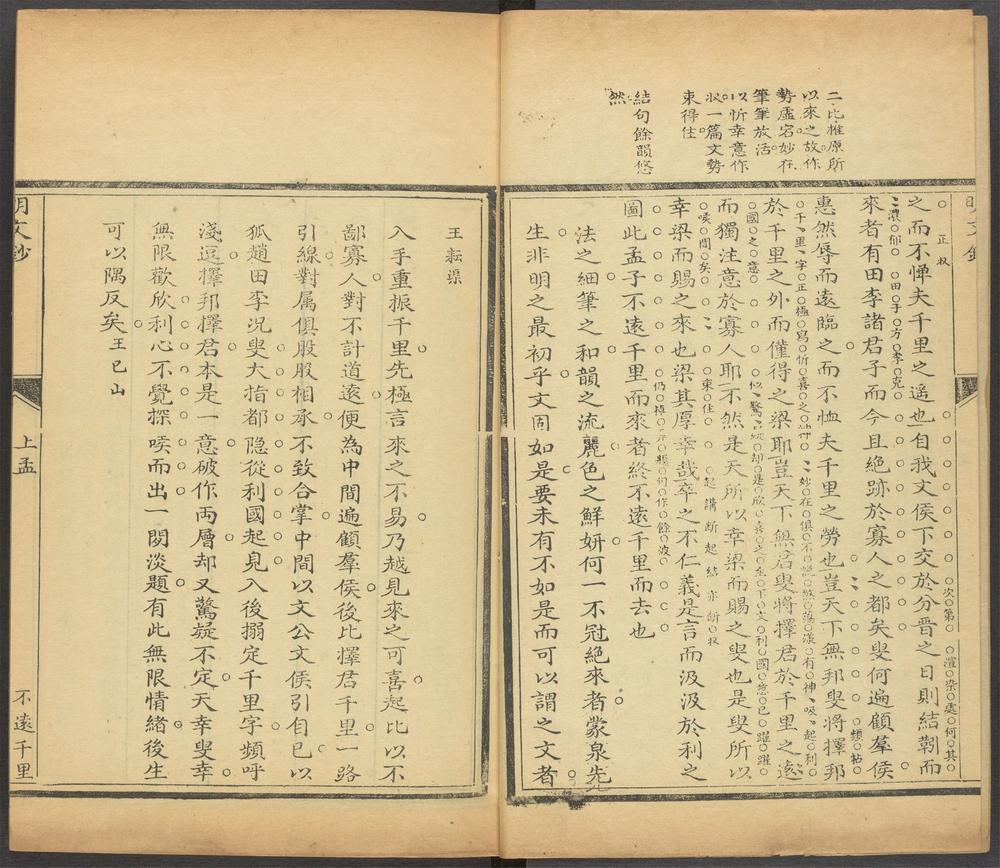 二比推原所
以來之故作
勢虛宕妙在
筆筆放活
以忻幸意作
收一篇文勢
束得住
結句餘韻悠
然
明文鈔
正收
次第
渲染處何其
之而不憚夫千里之遙也自我文侯下交於分晉之日則結靷而
濃郁
田子方李克
類帖
來者有田李諸君子而今且絕跡於寡人之都矣叟何遍顧羣侯
惠然辱而遠臨之而不恤夫千里之勞也豈天下無邦叟將擇邦
千里字正極寫忻喜之神
妙在俱不
有神
吸起利
於千里之外而僅得之梁耶豈天下無君叟將擇君於千里之遠
國之意
似驚疑却是欣喜之至下文利國意已躍躍
而獨注意於寡人耶不然是天所以幸梁而賜之叟也是叟所以
唉間矣
束住
起講斷起結亦斷收
幸梁而賜之來也梁其厚幸哉卒之不仁義是言而汲汲於利之
仍掉
類句作餘波
圖此孟子不遠千里而來者終不遠千里而去也
法之細筆之和韻之流麗色之鮮妍何一不冠絕來者蒙泉先
生非明之最初乎文固如是要未有不如是而可以謂之文者
王耘渠
入手重振千里先極言來之不易乃越見來之可喜起比以不
鄙寡人對不計道遠便為中間遍顧羣侯後比擇君千里一路
引線對属俱股股相承不致合掌中間以文公文侯引自己以
狐趙田李況叟大指都隐從利國起見入後搦定千里字頻呼
淺逗擇邦擇君本是一意破作両層却又驚疑不定天幸叟幸
無限歡欣利心不覺探喉而出一閱淡題有此無限情緒後生
可以隅反矣王已山
明文鈔
上孟
不遠千里